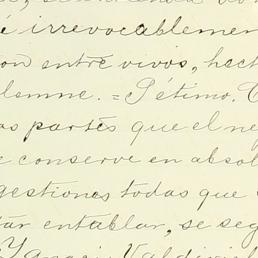 é irrevocablemen
on entre vivos, hech
lemne. = Sétimo. C
as partes que el ne
e conserve en absol
gestiones todas que
tar entablar, se seg